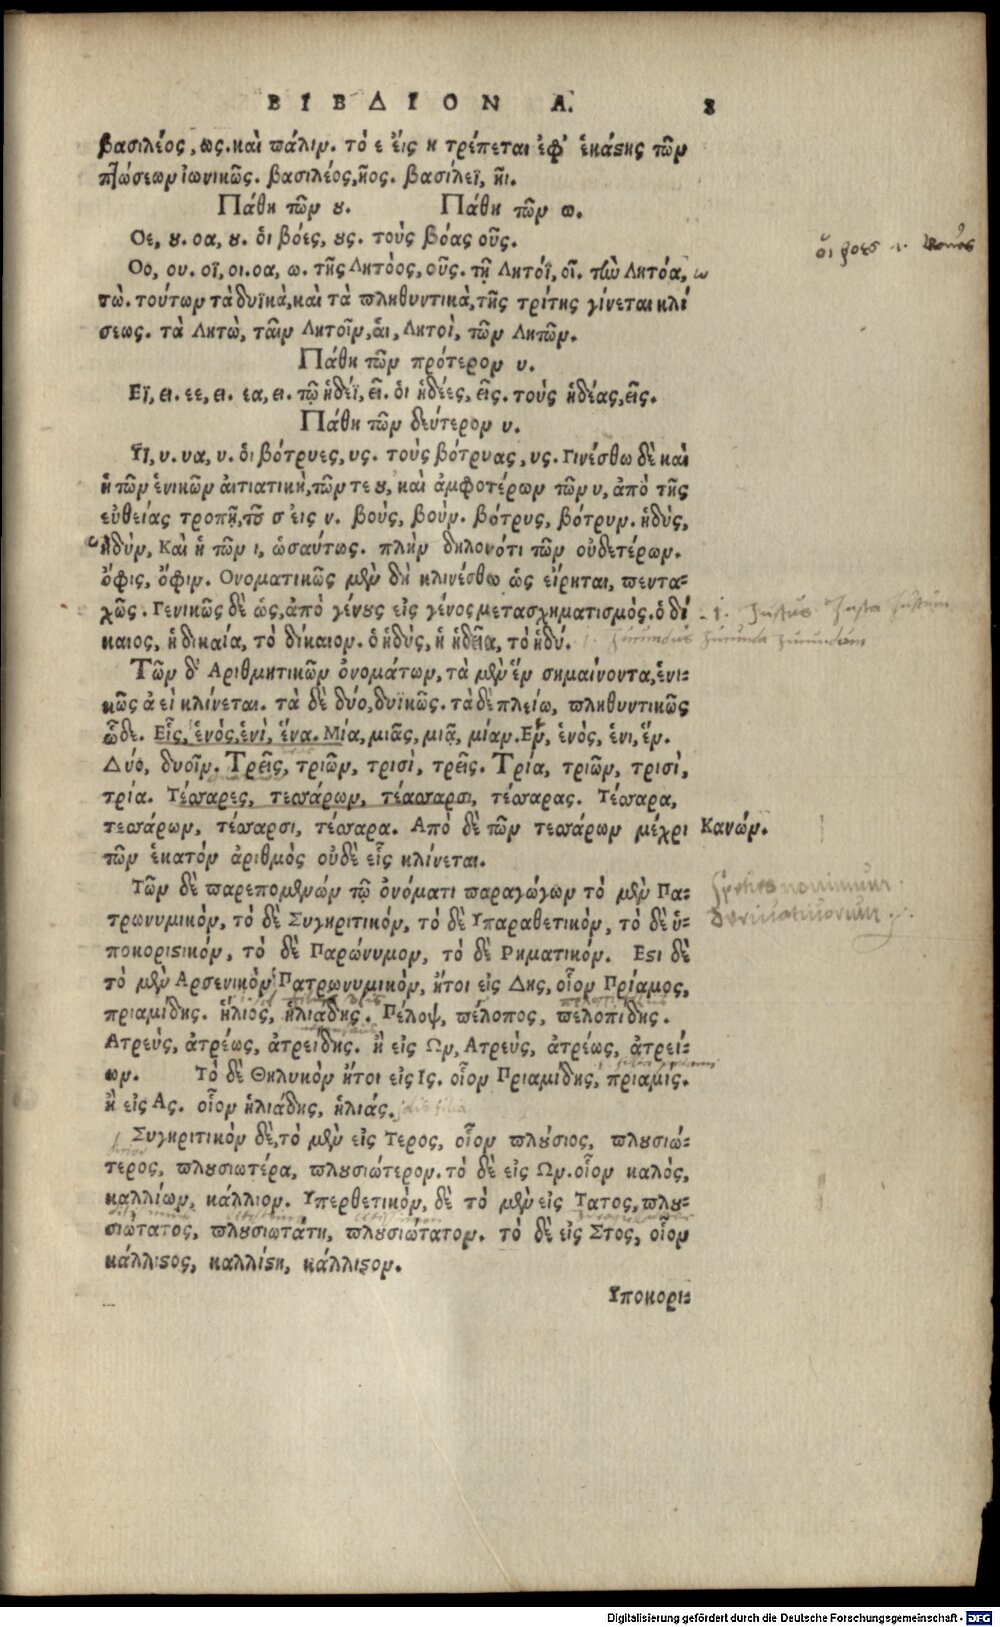 ΒΙΒΛΙΟΝ Α. 8
βασιλέος, ως. καὶ πάλιν. τὸ ε εἰς η τρέπεται ἐφ' ἑκάστης τῶν
πτώσεων ἰωνικῶς. βασιλέος, ῆος. βασιλέϊ, ῆι.
Πάθη τῶν ȣ. Πάθη τῶν ω.
Οε, ȣ. οα, ȣ. ὁι βόες, ȣς. τοὺς βόας οῦς.
Οο, ου. οϊ, οι. οα, ω. τῆς Λητόος, οῦς. τῇ Λητόϊ, οῖ. τὴν Λητόα, ω
τὼ. τούτων τὰ δυϊκὰ, καὶ τὰ πληθυντικὰ, τῆς τρίτης γίνεται κλί
σεως. τὰ Λητὼ, ταῖν Λητοῖν, ἁι, Λητοὶ, τῶν Λητῶν.
Πάθη τῶν πρότερον υ.
Εϊ, ει. εε, ει. εα, ει. τῷ ἡδέϊ, εῖ. ὁι ἡδέες, εῖς. τοὺς ἡδέας, εῖς.
Πάθη τῶν δεύτερον υ.
ΥΙ, υ. υα, υ. ὁι βότρυες, υς. τοὺς βότρυας, υς. Γινέσθω δὲ καὶ
ἡ τῶν ἑνικῶν ἀιτιατικὴ, τῶν τε ȣ, καὶ ἀμφοτέρων τῶν υ, ἀπὸ τῆς
εὐθείας τροπῇ, τοῦ σ εἰς ν. βοὺς, βοὺν. βότρυς, βότρυν. ἡδὺς,
ἡδὺν, Καὶ ἡ τῶν ι, ὡσαύτως. πλὴν δηλονότι τῶν οὐδετέρων.
ὄφις, ὄφιν. Ονοματικῶς μὲν δὴ κλινέσθω ὡς εἴρηται, πεντα-
χῶς. Γενικῶς δὲ ὡς, ἀπὸ γένȣς εἰς γένος μετασχηματισμὸς. ὁ δί
καιος, ἡ δικαία, τὸ δίκαιον. ὁ ἡδὺς, ἡ ἡδεῖα, τὸ ἡδύ.
Τῶν δ' Αριθμητικῶν ὀνομάτων, τὰ μὲν ἓν σημαίνοντα, ἑνι-
κῶς ἀεὶ κλίνεται. τὰ δὲ δύο, δυϊκῶς. τὰ δὲ πλείω, πληθυντικῶς
ὧδε. Εἷς, ἑνὸς, ἑνὶ, ἕνα. Μία, μιᾶς, μιᾷ, μίαν. Εν, ἑνὸς, ἑνι, ἓν.
Δύο, δυοῖν. Τρεῖς, τριῶν, τρισὶ, τρεῖς. Τρία, τριῶν, τρισὶ,
τρία. Τέσσαρες, τεσσάρων, τέσσαρσι, τέσσαρας. Τέσσαρα,
τεσσάρων, τέσσαρσι, τέσσαρα. Από δὲ τῶν τεσσάρων μέχρι Κανών.
τῶν ἑκατὸν ἀριθμὸς οὐδὲ εἷς κλίνεται.
Τῶν δὲ παρεπομένων τῷ ὀνόματι παραγώγων τὸ μὲν Πα-
τρωνυμικὸν, τὸ δὲ Συγκριτικὸν, τὸ δὲ Υπεραθετικὸν, τὸ δὲ ὑ-
ποκοριστικὸν, τὸ δὲ Παρώνυμον, τὸ δὲ Ρηματικὸν. Εστὶ δὲ
τὸ μὲν Αρσενικὸν Πατρωνυμικὸν, ἤτοι εἰς Δης, οἷον Πρίαμος,
πριαμίδης. ἥλιος, ἡλιάδης. Πέλοψ, πέλοπος, πελοπίδης.
Ατρεὺς, ἀτρέως, ἀτρείδης. ἢ εἰς Ων, Ατρεὺς, ἀτρέως, ἀτρεί-
ων. Τὸ δὲ Θηλυκὸν ἤτοι εἰς Ις. οἷον Πριαμίδης, πριαμὶς.
ἢ εἰς Ας. οἷον ἡλιάδης, ἡλιάς.
Συγκριτικὸν δὲ, τὸ μὲν εἰς Τερος, οἷον πλȣσιος, πλȣσιώ-
τερος, πλȣσιωτέρα, πλȣσιώτερον. τὸ δὲ εἰς Ων. οἷον καλὸς,
καλλίων, κάλλιον. Υπερθετικὸν, δὲ τὸ μὲν εἰς Τατος, πλȣ-
σιώτατος, πλȣσιωτάτη, πλȣσιώτατον. τὸ δὲ εἰς Στος, οἷον
κάλλιστος, καλλίστη, κάλλιστον.
Υποκορι-
i. Justus Justa Justum
Species nominum
derivativorum.
Digitalisierung gefördert durch die Deutsche Forschungsgemeinschaft - DFG